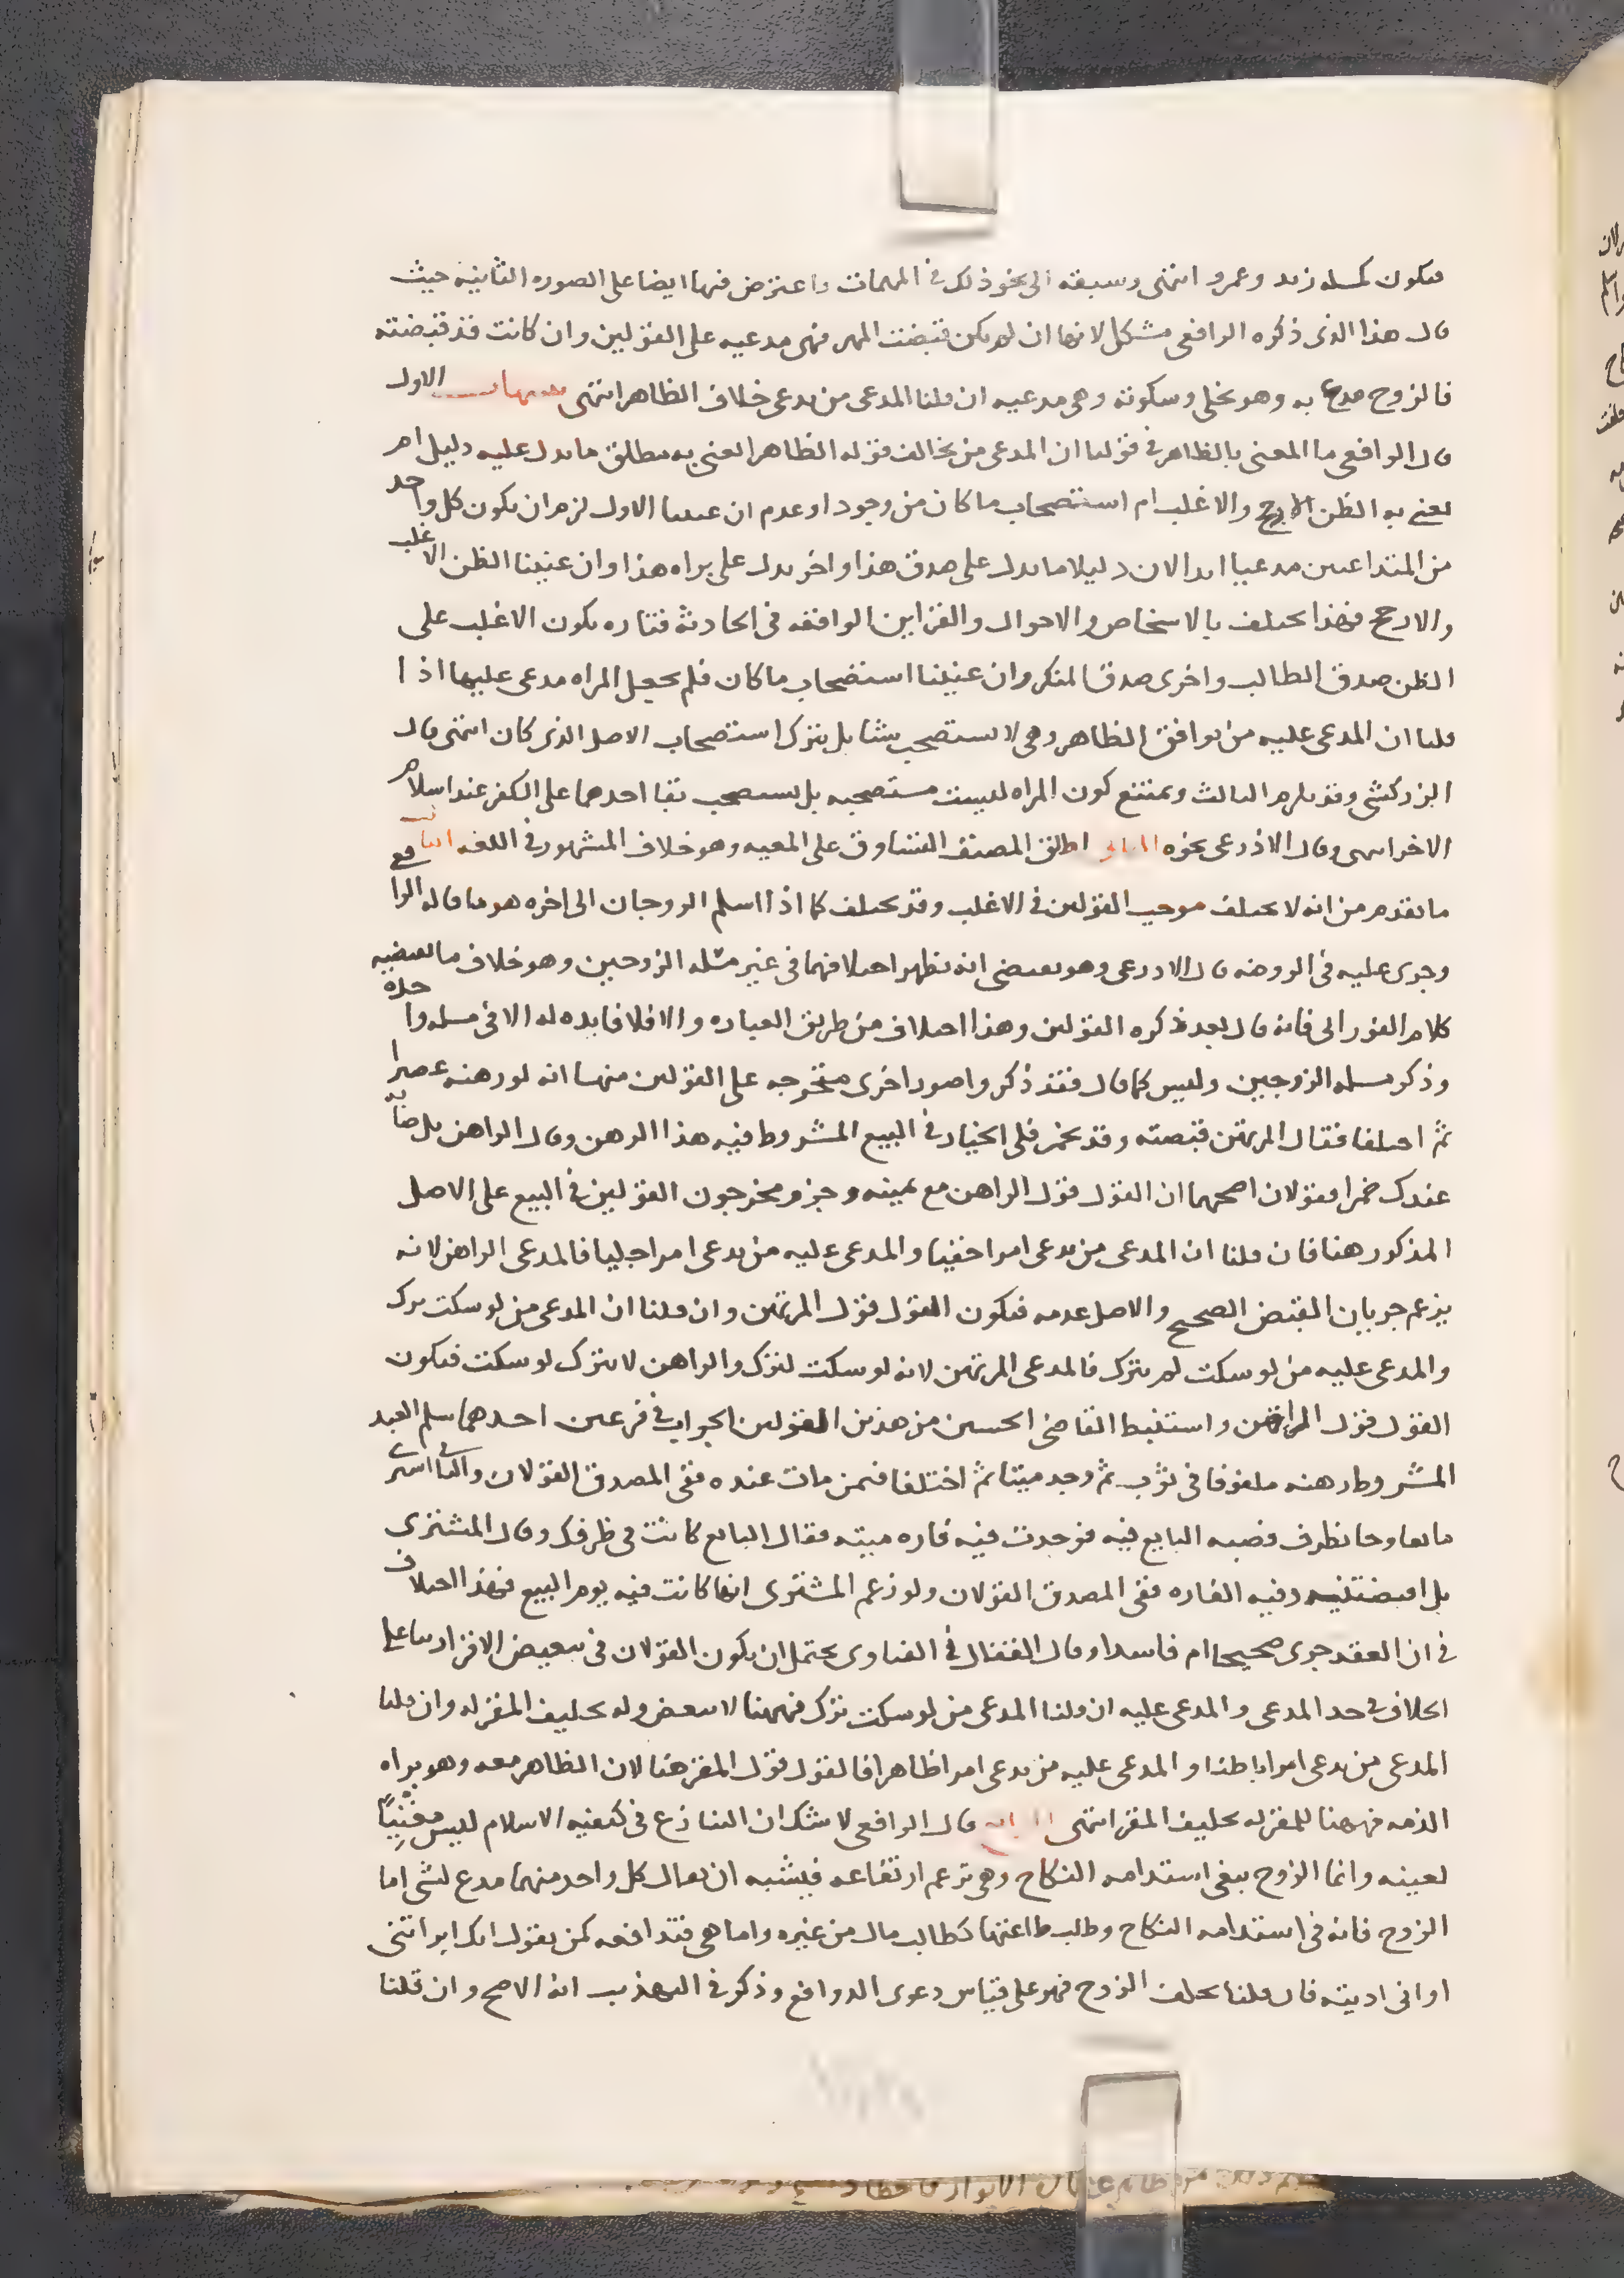 فيكون كمسله زيد وعمرو انتهى وسبقه الى نحو ذلك في المهمات واعترض فيها ايضا على الصوره الثانيه حيث
قال هذا الذى ذكره الرافعى مشكل لانها ان لم يكن قبضت المهر فهى مدعيه على القولين وان كانت قد قبضته
فالزوج مدع به وهو يخلى وسكوته وهى مدعيه ان قلنا المدعى من يدعى خلاف الظاهر انتهى تنبيهات الاول
قال الرافعى ما المعنى بالظاهر في قولنا ان المدعى من يخالف قوله الظاهر العنى به مطلق ما يدل عليه دليل ام
نعنى به الظن الارجح والاغلب ام استصحاب ما كان من وجود او عدم ان عنينا الاول لزم ان يكون كل واحد
من المتداعيين مدعيا ابدا لان دليلا ما يدل على صدق هذا واخر يدل على براه هذا وان عنينا الظن الاغلب
والارجح فهذا يختلف بالاشخاص والاحوال والقراين الواقعه في الحادثه فتاره يكون الاغلب على
الظن صدق الطالب واخرى صدق المنكر وان عنينا استصحاب ما كان فلم يجعل المراه مدعى عليها اذا
قلنا ان المدعى عليه من يوافق الظاهر وهى لا تستصحب شيا بل تترك استصحاب الاصل الذى كان انتهى قال
الزركشى وقد يلزم الثالث ويمتنع كون المراه ليست مستصحبه بل تستصحب بقا احدهما على الكفر عند اسلام
الاخر انتهى وقال الاذرعى نحوه الثانى اطلق المصنف التساوق على المعيه وهو خلاف المشهور في اللغه الثالث
ما تقدم من انه لا يختلف موجب القولين في الاغلب وقد يختلف كما اذا اسلم الزوجان الى اخره هو ما قاله الرافعى
وجرى عليه في الروضه قال الاذرعى وهو يقتضى انه يظهر اختلافهما في غير مثله الزوجين وهو خلاف ما يقتضيه
كلام الفورانى فانه قال بعد ذكره القولين وهذا اختلاف من طريق العباره والا فلا فايده له الا في مسله واحده
وذكر مسله الزوجين وليس كما قال فقد ذكروا صورا اخرى متخرجه على القولين منها انه لو رهنه عصيرا
ثم اختلفا فقال المرتهن قبضته وقد تخمر فلى الخيار في البيع المشروط فيه هذا الرهن وقال الراهن بل صار
عندك خمرا فقولان اصحهما ان القول قول الراهن مع يمينه وجزم مخرجون القولين في البيع على الاصل
المذكور هنا فان قلنا ان المدعى من يدعى امرا خفيا والمدعى عليه من يدعى امرا جليا فالمدعى الراهن لانه
يزعم جريان القبض الصحيح والاصل عدمه فيكون القول قول المرتهن وان قلنا ان المدعى من لو سكت ترك
والمدعى عليه من لو سكت لم يترك فالمدعى المرتهن لانه لو سكت لترك والراهن لا يترك لو سكت فيكون
القول قول الراهن واستنبط القاضى الحسين من هذين القولين الجواب في فرعين احدهما سلم العبد
المشروط رهنه ملفوفا في ثوب ثم وجد ميتا ثم اختلفا فيمن مات عنده ففى المصدق القولان والثانى اشترى
مايعا وجا بظرف فصبه البايع فيه فوجدت فيه فاره ميته فقال البايع كانت في ظرفك وقال المشترى
بل اقبضتنيه وفيه الفاره ففى المصدق القولان ولو زعم المشترى انها كانت فيه يوم البيع فهذا اختلاف
في ان العقد جرى صحيحا ام فاسدا وقال القفال في الفتاوى يحتمل ان يكون القولان في تبعيض الاقرار بنا على
الخلاف في حد المدعى والمدعى عليه ان قلنا المدعى من لو سكت ترك فههنا لا تبعض وله تحليف المقر له وان قلنا
المدعى من يدعى امرا باطنا والمدعى عليه من يدعى امرا ظاهرا فالقول قول المقر هنا لان الظاهر معه وهو براه
الذمه فههنا للمقر له تحليف المقر انتهى الرابع قال الرافعى لا شك ان التنازع في كيفيه الاسلام ليس مغنيا
بعينه وانما الزوج يبغى استدامه النكاح وهى تزعم ارتفاعه فيشبه ان يقال كل واحد منهما مدع لشى اما
الزوج فانه في استدامه النكاح وطلب طاعتها كطالب مال من غيره واما هى فتدافعه كمن يقول انك ابراتنى
او انى اديته فان قلنا يحلف الزوج فهو على قياس دعوى الدوافع وذكر في التهذيب انه الاصح وان قلنا